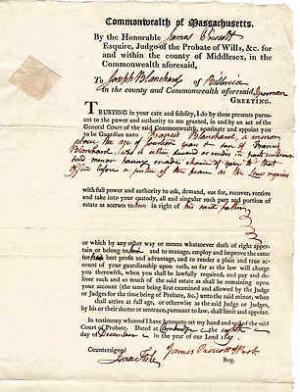 Commonwealth of Massachusetts.
By the Honorable James Prescott
Esquire, Judge of the Probate of Wills, &c. for
and within the county of Middlesex, in
the Commonwealth aforesaid,
To Joseph Blanchard of Billerica
in the county and Commonwealth aforesaid Yeoman
GREETING.
TRUSTING in your care and fidelity, I do by these presents
pursuant to the power and authority to me granted, in and by an act of the
General Court of the said Commonwealth, nominate and appoint you
to be Guardian unto Francis Blanchard, a minor
above the age of fourteen years & son of
Blanchard, late of
said minor having made choice of you to that
office before a justice of the peace as the Law requires
with full power and authority to ask, demand, sue for, recover, receive
and take into your custody, all and singular such part and portion
of estate as accrues to him in right of his
or which by any other way or means whatsoever doth of right apper-
tain or belong to him and to manage, employ and improve the same
for his best profit and advantage, and to render a plain and true ac-
count of your guardianship upon oath, so far as the law will charge
you therewith, when you shall be lawfully required, and pay and de-
liver such and so much of the said estate as shall be remaining upon
your account (the same being first examined and allowed by the Judge
or Judges for the time being of Probate, &c.) unto the said minor, when
shall arrive at full age, or otherwise as the said Judge or Judges,
by his or their decree or sentence, pursuant to law, shall limit and appoint.
In testimony whereof I have hereunto set my hand and seal of the said
Court of Probate. Dated at Cambridge the
day of December in the year of our Lord
Countersigned James Prescott
Isaac Fiske Reg.